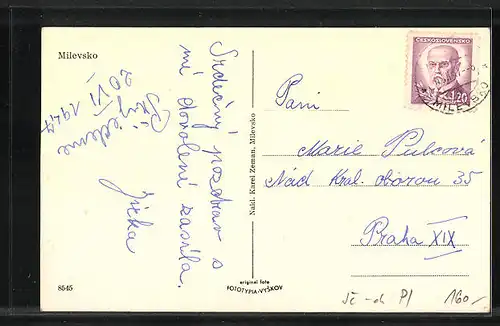 Milevsko
Srdečný pozdrav s
mé dovolené zasílá
Jiřka
Přijedeme
20 VI 1947
8545
Nakl. Karel Zeman, Milevsko
original foto
FOTOTYPIA-VYŠKOV
ČESKOSLOVENSKO
1.20
MILEVSKO
Paní
Marie Pulcová
Nád Kral. oborou 35
Praha XIX
Jč - ok Pl
160,-